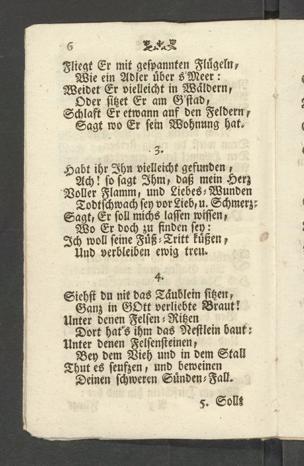 6
Fliegt Er mit gespannten Flügeln,
Wie ein Adler über s'Meer:
Weidet Er vielleicht in Wäldern,
Oder sitzet Er am G'stad,
Schlaft Er etwann auf den Feldern,
Sagt wo Er sein Wohnung hat.
3.
Habt ihr Ihn vielleicht gefunden,
Ach! so sagt Ihm, daß mein Herz
Voller Flamm, und Liebes-Wunden
Todtschwach sey vor Lieb, u. Schmerz:
Sagt, Er soll michs lassen wissen,
Wo Er doch zu finden sey:
Ich woll seine Füß-Tritt küßen,
Und verbleiben ewig treu.
4.
Siehst du nit das Täublein sitzen,
Ganz in GOtt verliebte Braut!
Unter denen Felsen-Ritzen
Dort hat's ihm das Nestlein baut:
Unter denen Felsensteinen,
Bey dem Vieh und in dem Stall
Thut es seufzen, und beweinen
Deinen schweren Sünden-Fall.
5. Sollt